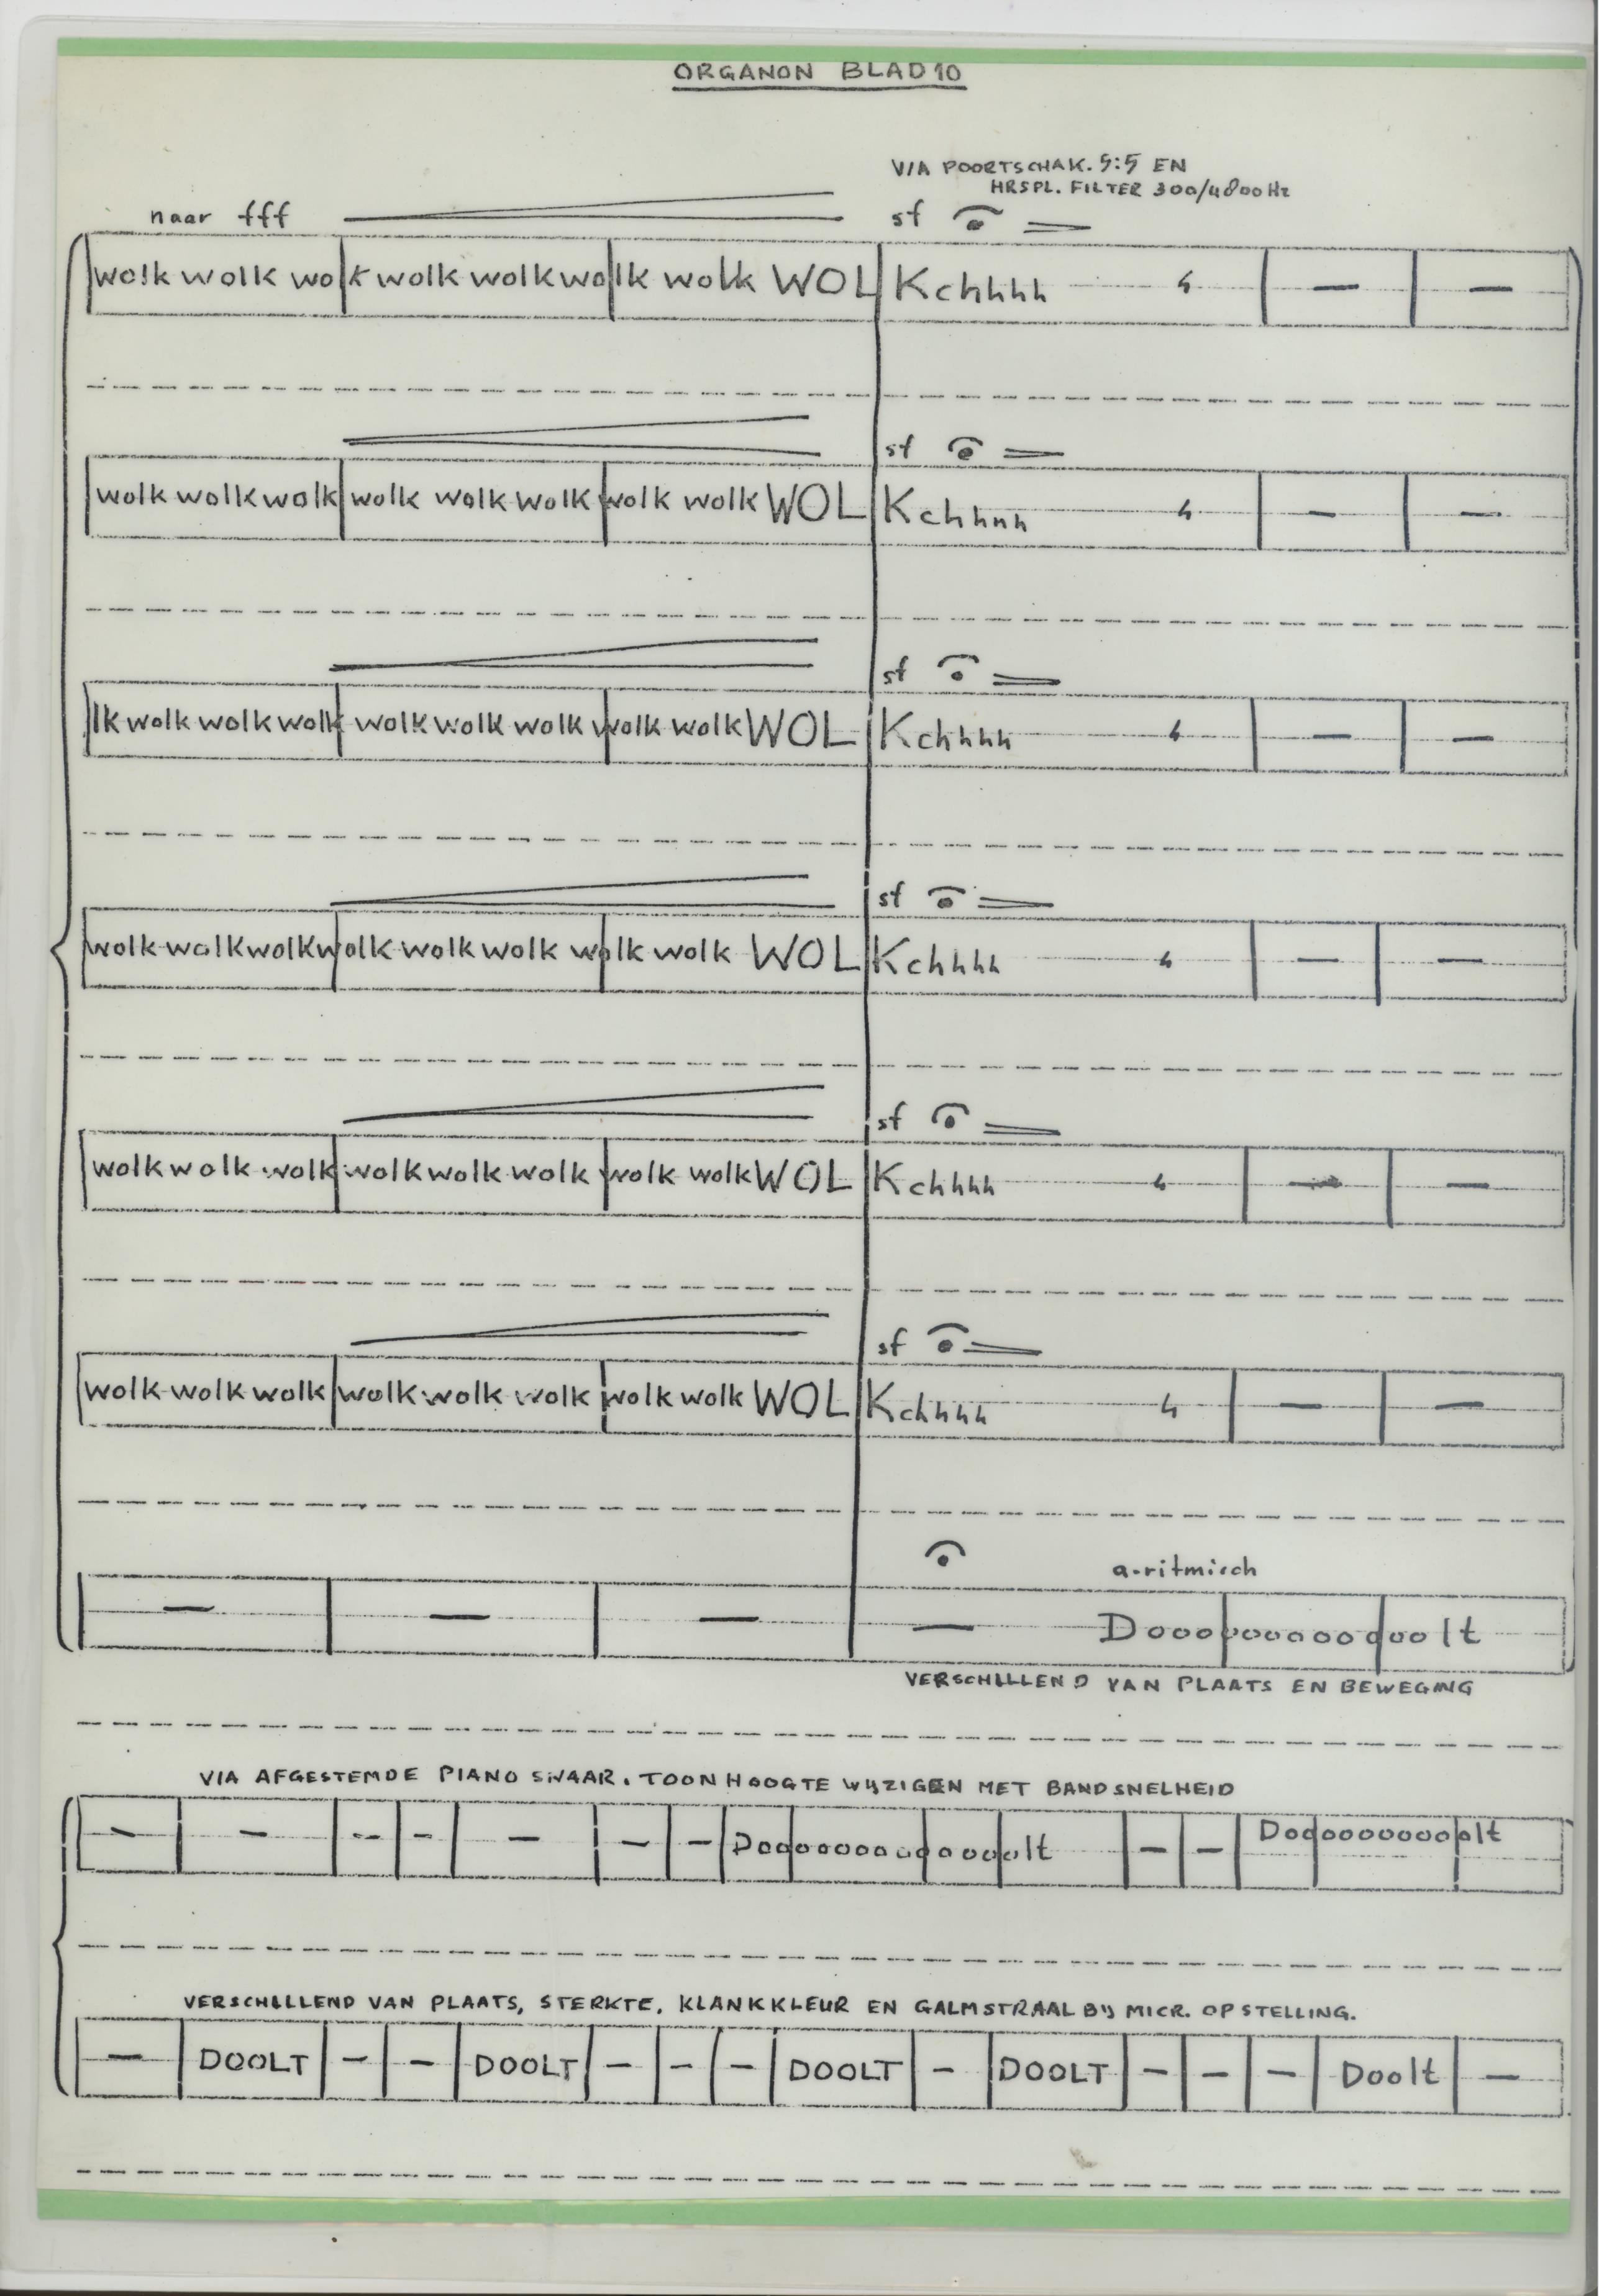 ORGANON BLAD 10
VIA POORTSCHAK. 5:5 EN
HRSPL. FILTER 300/4800 Hz
naar fff sf
wolk wolk wolk wolk wolk wolk wolk WOLKchhhh h
sf
wolk wolk wolk wolk wolk wolk wolk wolk WOLKchhhh h
sf
lk wolk wolk wolk wolk wolk wolk wolk wolk WOLKchhhh h
sf
wolk wolk wolk wolk wolk wolk wolk wolk WOLKchhhh h
sf
wolk wolk wolk wolk wolk wolk wolk wolk WOLKchhhh h
sf
wolk wolk wolk wolk wolk wolk wolk wolk WOLKchhhh h
a-ritmisch
— — — — Dooooooooooooolt
VERSCHILLEND VAN PLAATS EN BEWEGING
VIA AFGESTEMDE PIANO SNAAR. TOONHOOGTE WIJZIGEN MET BANDSNELHEID
— — -- - — — — Dooooooooooooooolt — — Dooooooooooolt
VERSCHILLEND VAN PLAATS, STERKTE, KLANKKLEUR EN GALMSTRAAL BIJ MICR. OPSTELLING.
— DOOLT — — DOOLT — — — DOOLT — DOOLT — — — Doolt —